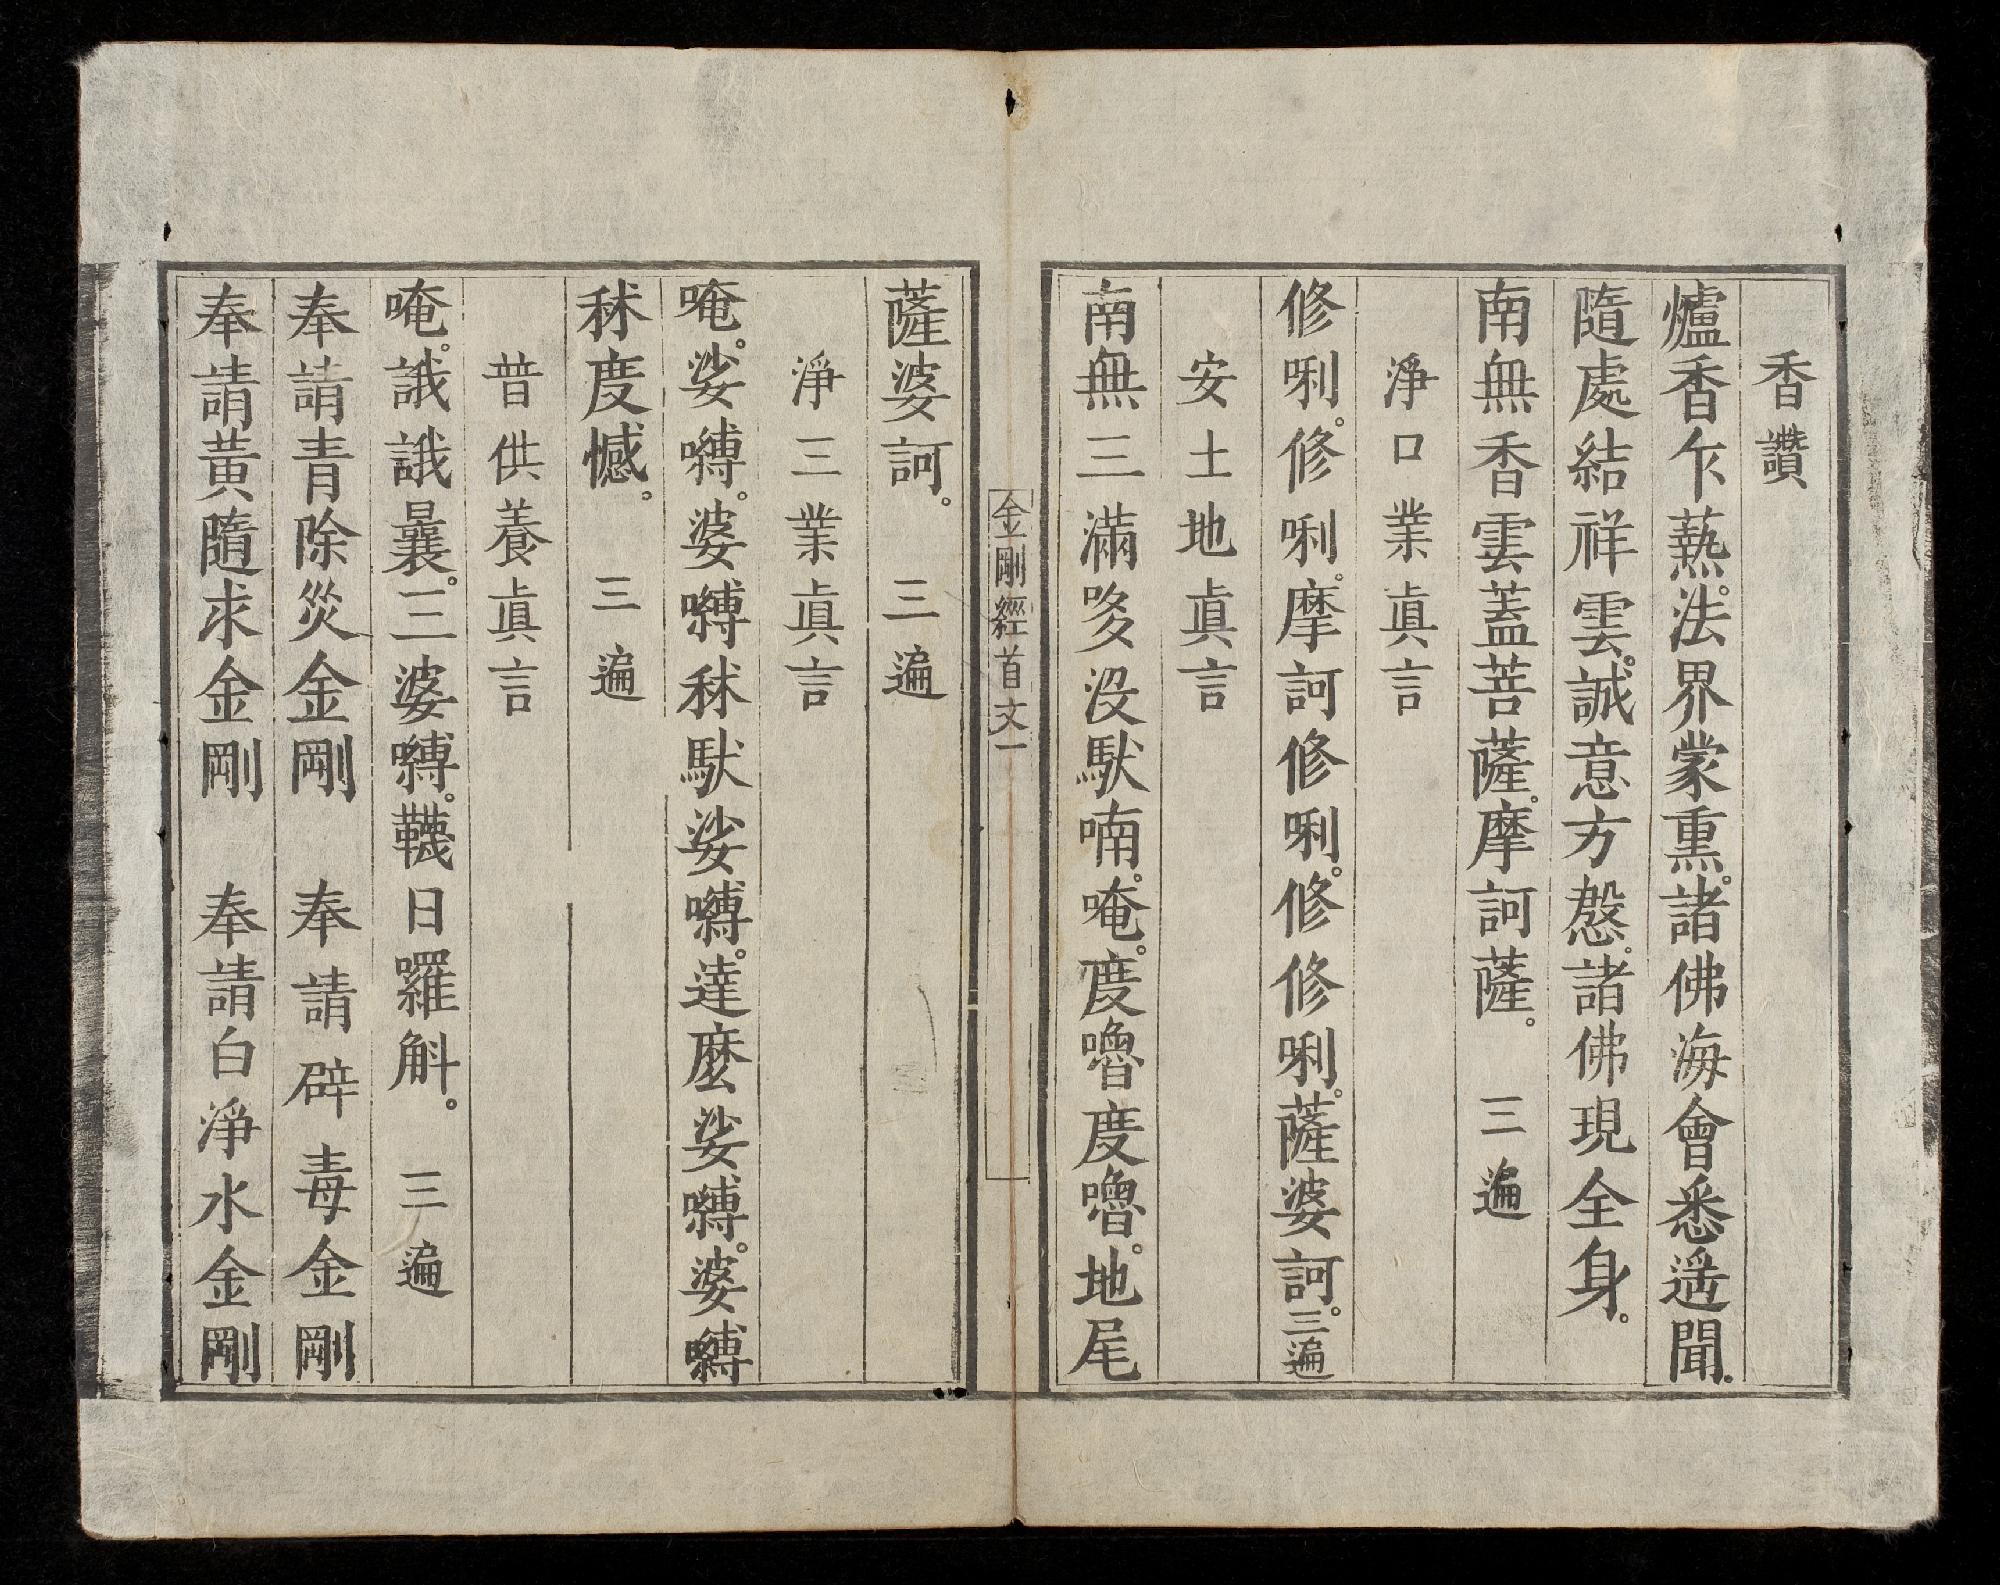 香讚
爐香乍爇。法界蒙熏。諸佛海會悉遥聞。
隨處結祥雲。誠意方慇。諸佛現全身。
南無香雲蓋菩薩。摩訶薩。　三遍
淨口業眞言
修唎。修唎。摩訶修唎。修修唎。薩婆訶。三遍
安土地眞言
南無三滿哆沒䭾喃。唵。度嚕度嚕。地尾
金剛經首文一
薩婆訶。　三遍
淨三業眞言
唵。娑嚩。婆嚩秫䭾娑嚩。達麽娑嚩。婆嚩
秫度憾。　三遍
普供養眞言
唵。誐誐曩。三婆嚩。韈日囉斛。　三遍
奉請青除災金剛　奉請辟毒金剛
奉請黃隨求金剛　奉請白淨水金剛